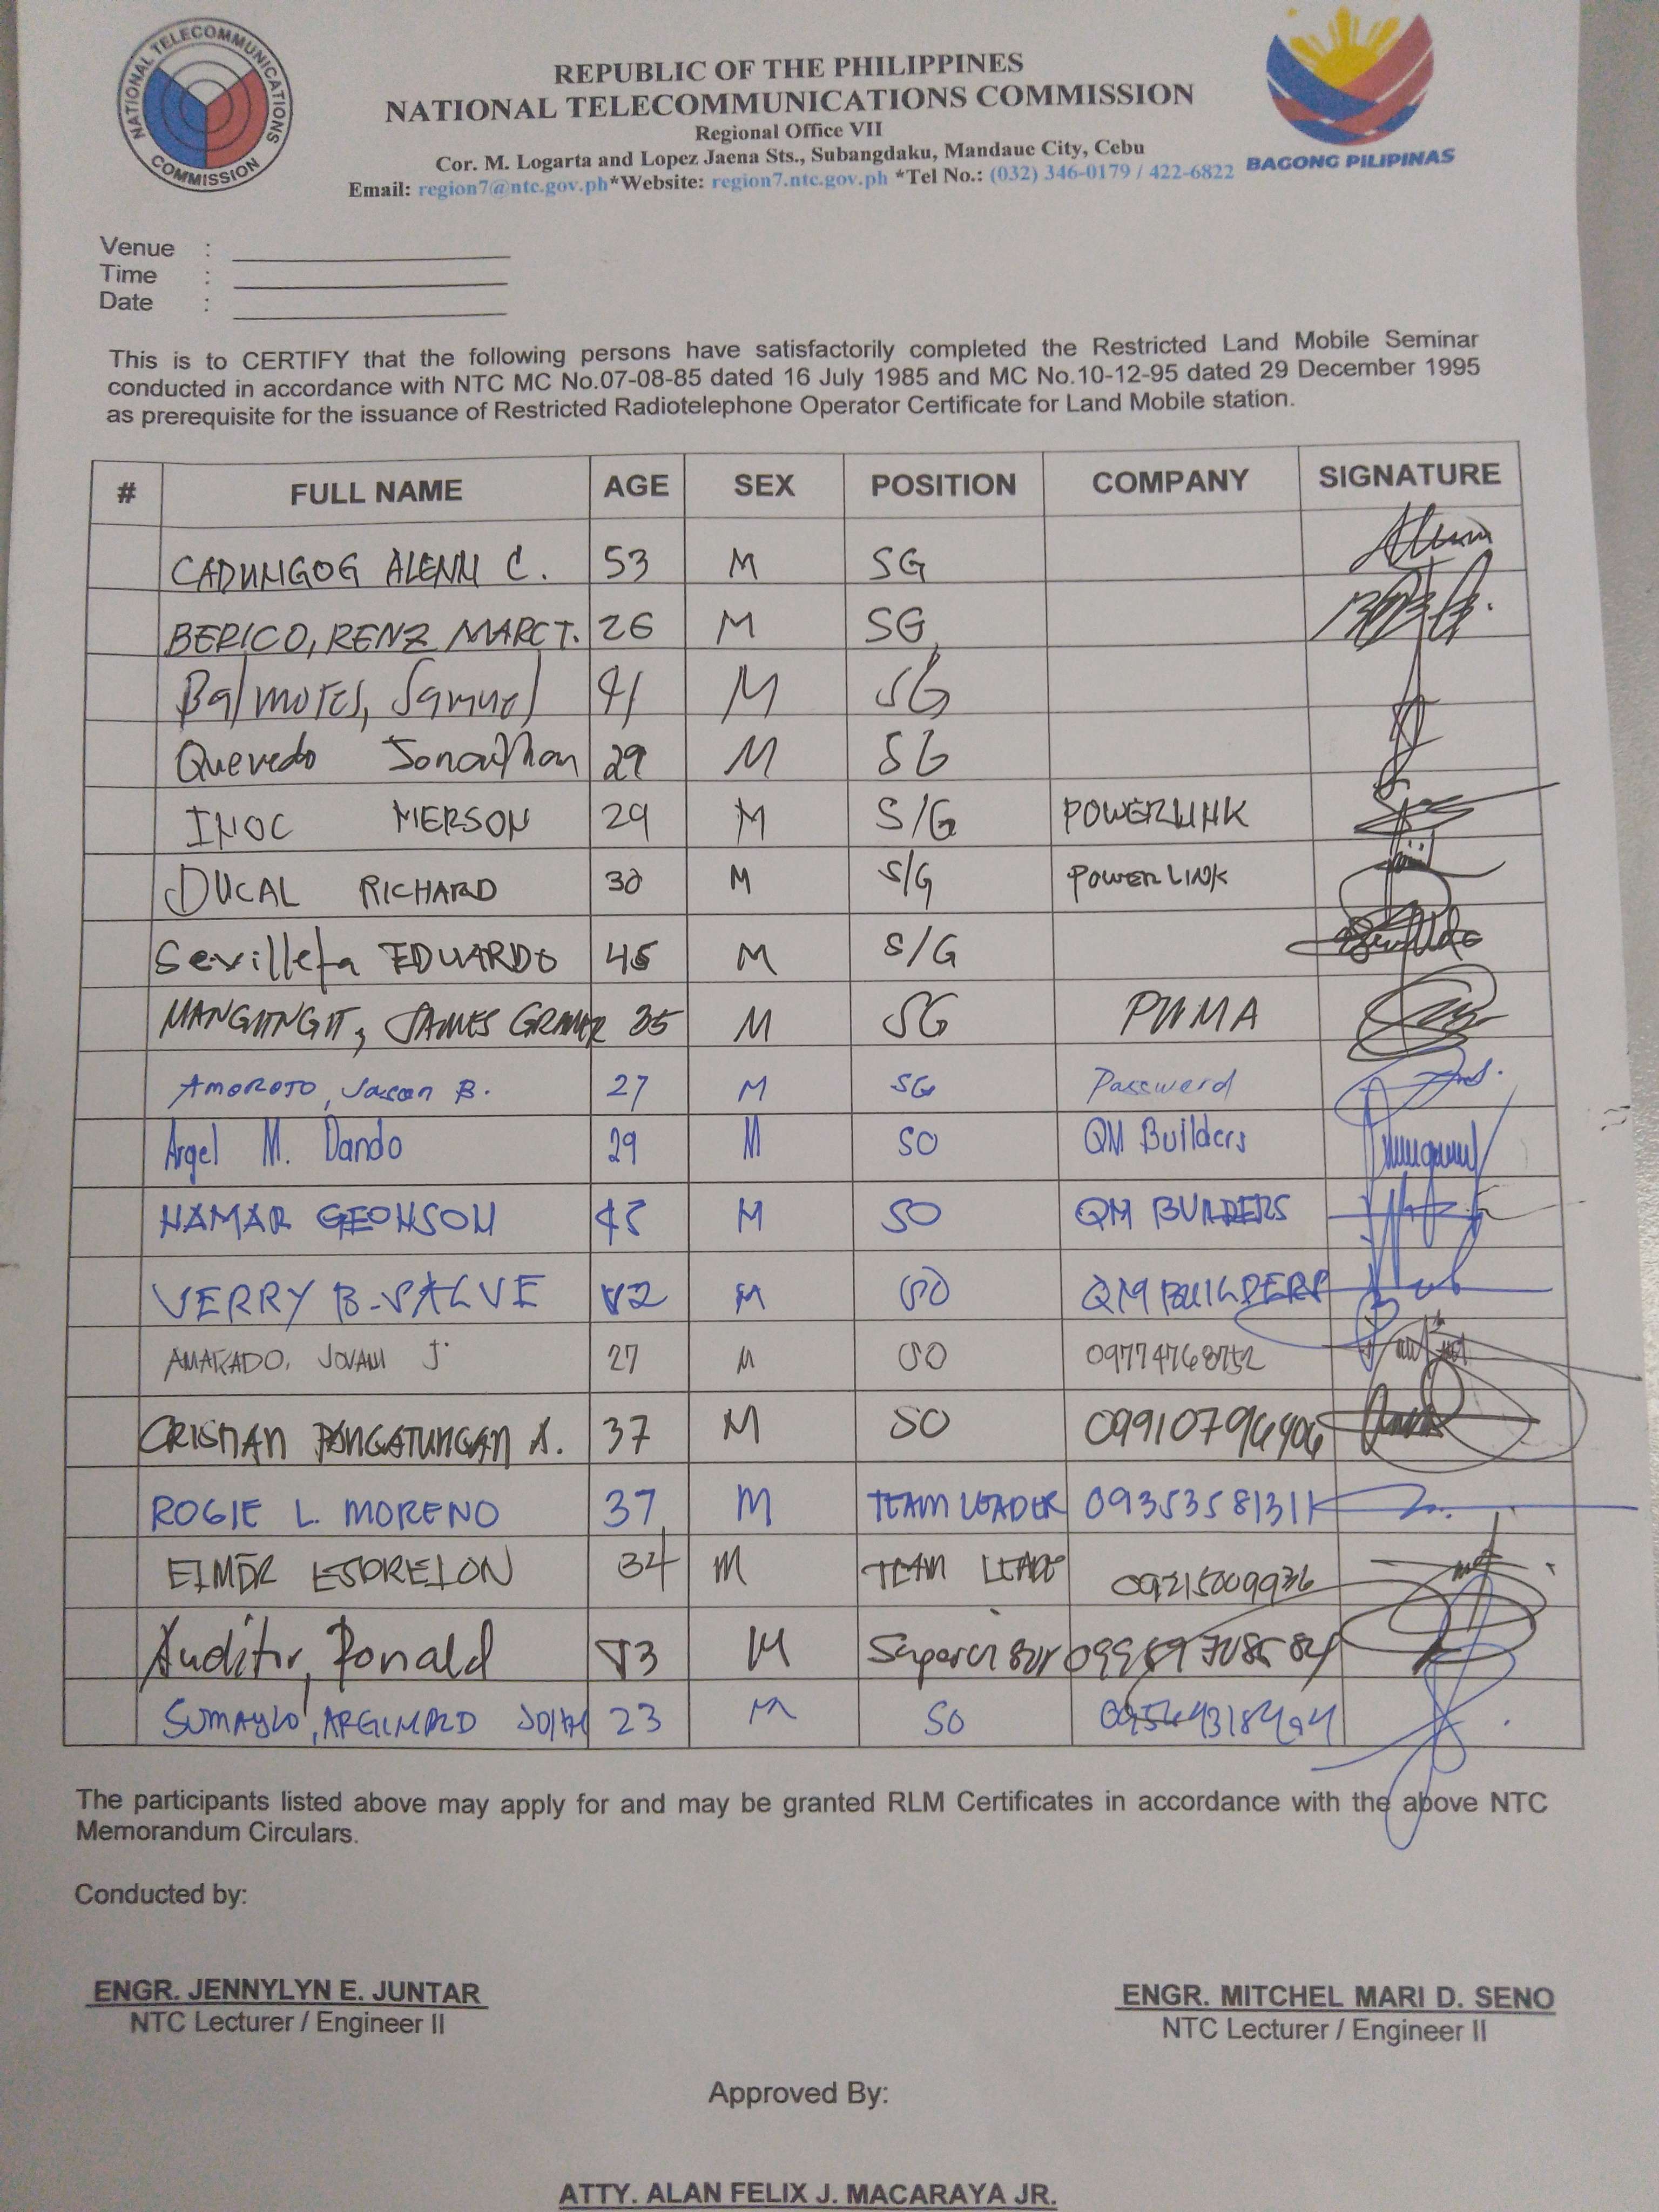 NATIONAL TELECOMMUNICATIONS COMMISSION
REPUBLIC OF THE PHILIPPINES
NATIONAL TELECOMMUNICATIONS COMMISSION
Regional Office VII
Cor. M. Logarta and Lopez Jaena Sts., Subangdaku, Mandaue City, Cebu
Email: region7@ntc.gov.ph*Website: region7.ntc.gov.ph *Tel No.: (032) 346-0179 / 422-6822
BAGONG PILIPINAS
Venue :
Time :
Date :
This is to CERTIFY that the following persons have satisfactorily completed the Restricted Land Mobile Seminar
conducted in accordance with NTC MC No.07-08-85 dated 16 July 1985 and MC No.10-12-95 dated 29 December 1995
as prerequisite for the issuance of Restricted Radiotelephone Operator Certificate for Land Mobile station.
# FULL NAME AGE SEX POSITION COMPANY SIGNATURE
CADUNGOG ALENN C. 53 M SG
BERICO, RENZ MARC T. 26 M SG
Balmores, Samuel 41 M SG
Quevedo Jonathan 29 M SG
INOC MERSON 29 M S/G POWERLINK
DUCAL RICHARD 30 M S/G POWERLINK
Sevilleja EDUARDO 45 M S/G
JAMES 35 M SG PNMA
AMOROTO, Jason B. 27 M SG Password
Argel M. Dando 29 M SO QM Builders
HAMAR GEOHSON 45 M SO QM BUILDERS
VERRY B. SALVE 42 M SO QM BUILDERS
JOVANI J. 27 M SO 09774768752
CRISTIAN PANGATUNGAN A. 37 M SO
ROGIE L. MORENO 37 M TEAM LEADER
ELMER ESDRELON 34 M TEAM LEADE 09215009936
Auditor, Ronald 43 M Supervisor
SUMAYLO, JOHN 23 M SO
The participants listed above may apply for and may be granted RLM Certificates in accordance with the above NTC
Memorandum Circulars.
Conducted by:
ENGR. JENNYLYN E. JUNTAR ENGR. MITCHEL MARI D. SENO
NTC Lecturer / Engineer II NTC Lecturer / Engineer II
Approved By:
ATTY. ALAN FELIX J. MACARAYA JR.